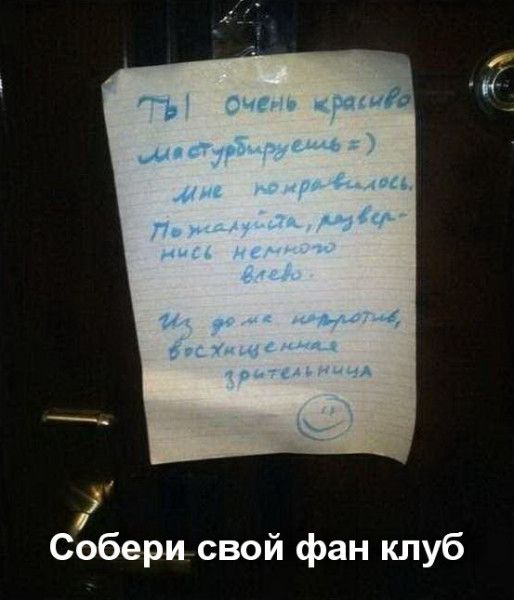 Ты очень красиво
мастурбируешь =)
Мне понравилось.
Пожалуйста, развер-
нись немного
влево.
Из дома напротив,
восхищенная
зрительница
Собери свой фан клуб